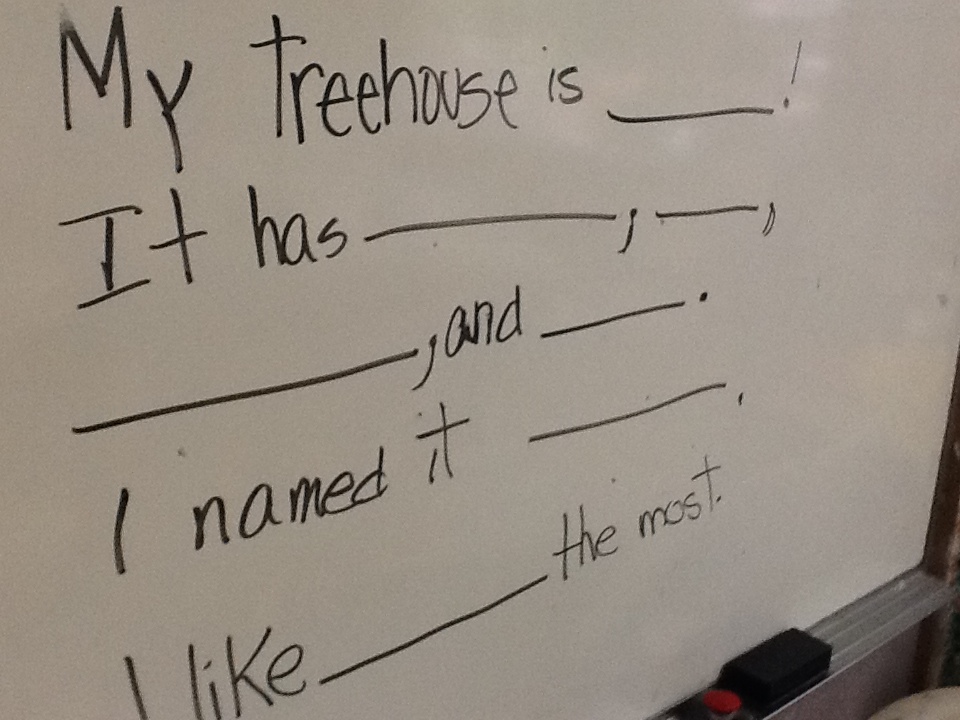 My treehouse is ____!
It has ________, ____,
________, and ____.
I named it ____.
I like ____ the most.